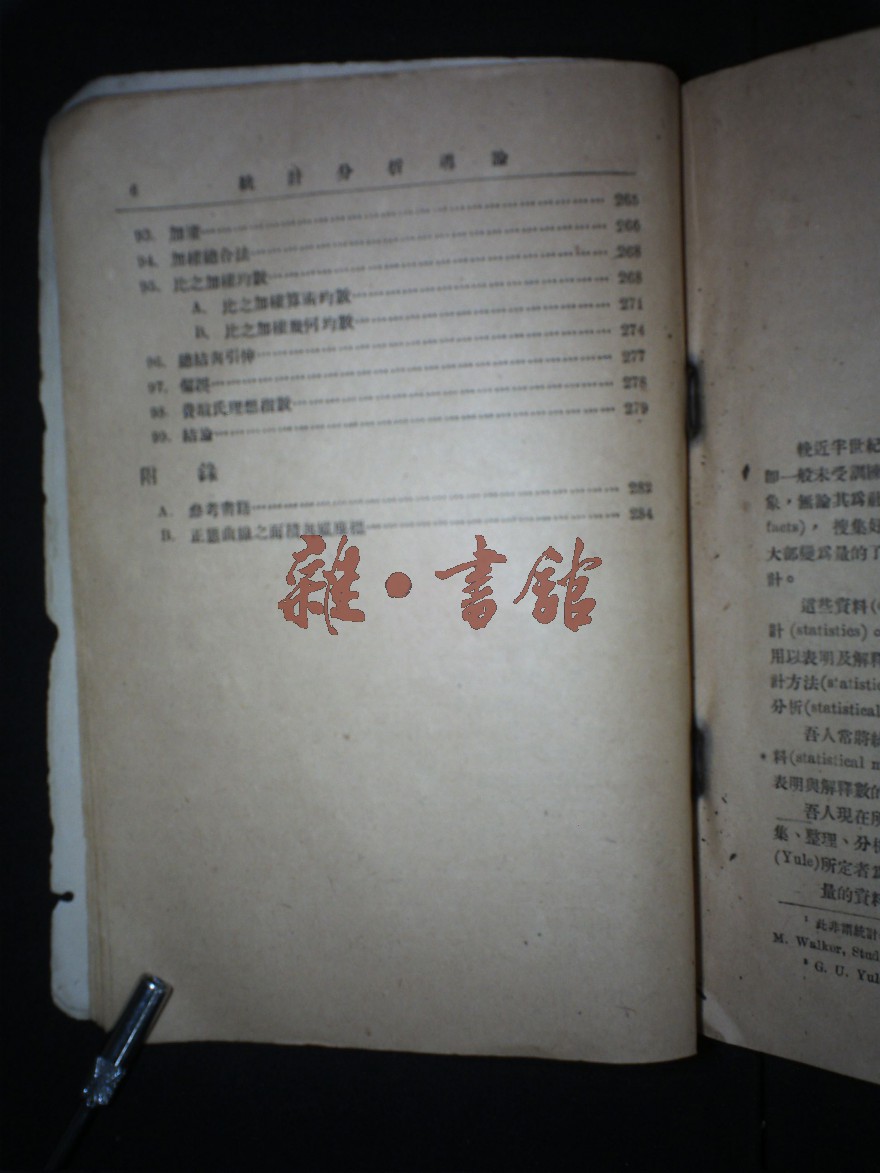 6 統計分析導論
93. 加權 265
94. 加權總合法 266
95. 比之加權均數 268
A. 比之加權算術均數 268
B. 比之加權幾何均數 271
96. 總結與引伸 274
97. 偏誤 277
98. 費暄氏理想指數 278
99. 結論 279
附錄
A. 參考書籍 282
B. 正態曲線之面積與縱座標 284
雜•書館
晚近半世紀
即一般未受訓練
象,無論其爲
facts), 搜集
大部變爲量的了
計。
這些資料(
計 (statistics)
用以表明及解釋
計方法(statistic
分析(statistical
吾人常將統
料(statistical m
表明與解釋數的
吾人現在所
集、整理、分析
(Yule)所定者爲
量的資料
1 此非謂統計
M. Walker, Stud
2 G. U. Yul